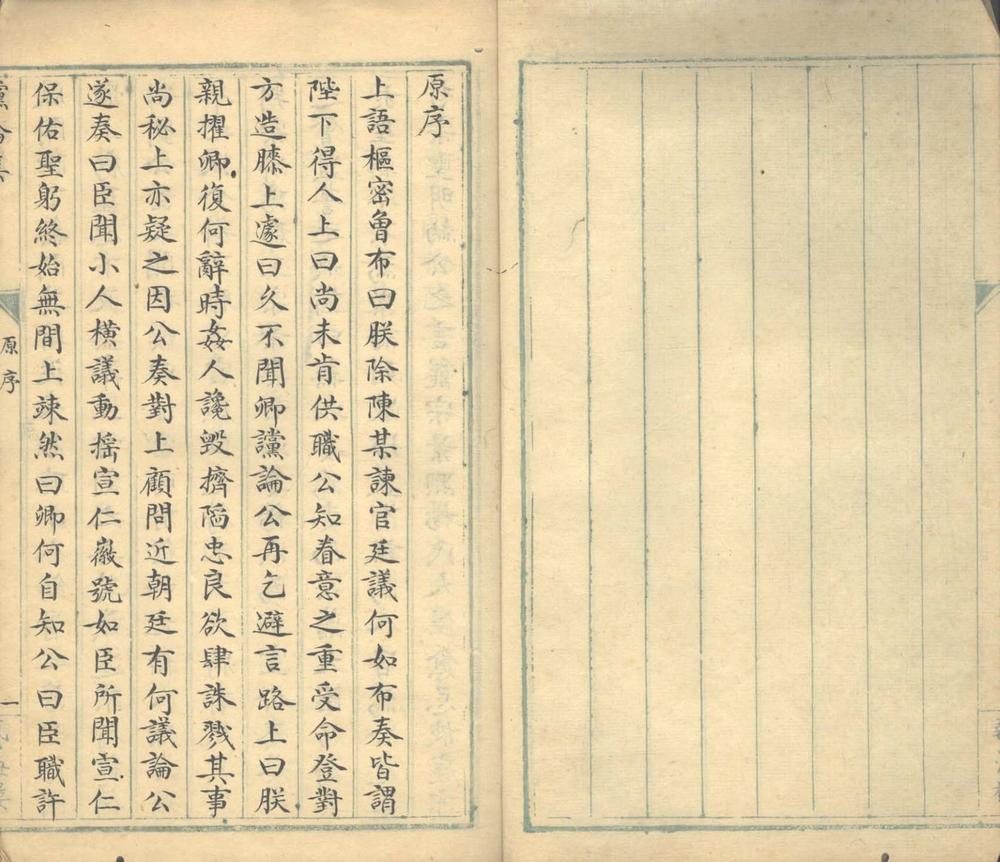 原序
上語樞密曾布曰朕除陳某諫官廷議何如布奏皆謂
陛下得人上曰尚未肯供職公知眷意之重受命登對
方造膝上遽曰久不聞卿讜論公再乞避言路上曰朕
親擢卿復何辭時姦人讒毀擠陷忠良欲肆誅戮其事
尚秘上亦疑之因公奏對上顧問近朝廷有何議論公
遂奏曰臣聞小人橫議動搖宣仁徽號如臣所聞宣仁
保佑聖躬終始無間上竦然曰卿何自知公曰臣職許
原序
一